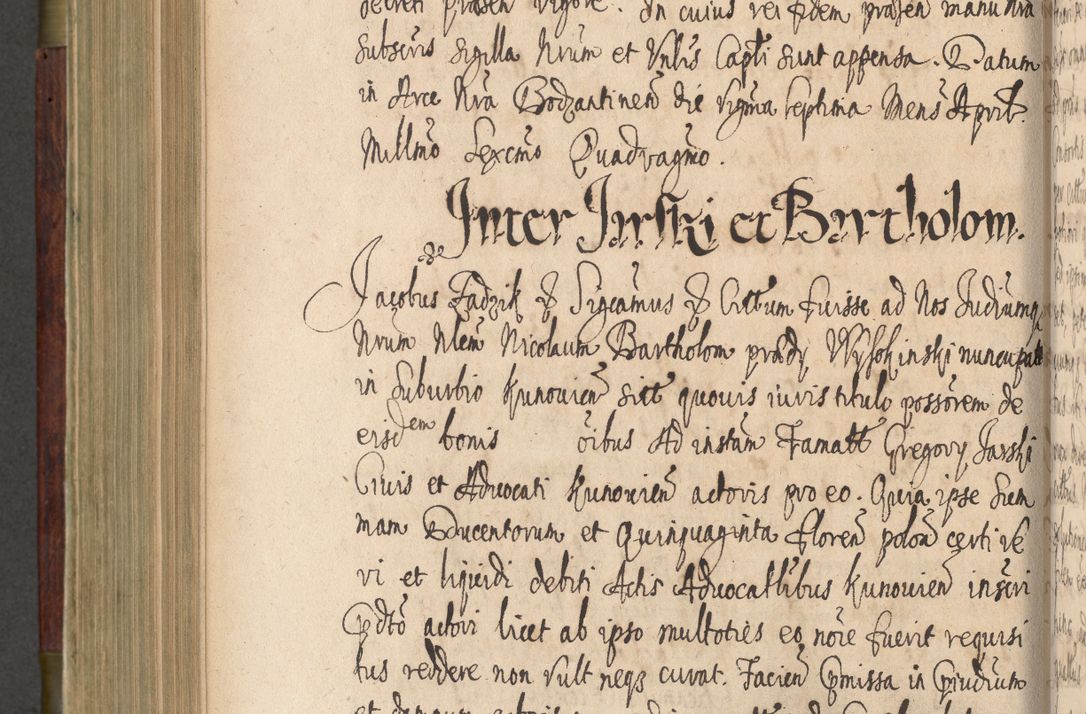 decreti præsen vigore. In cuius rei fidem præsen manu nra
subscris sigilla Nrum et Vnlis Capli sunt appensa. Datum
in Arce Nra Bodzantinen die vigma septima Mens April.
Millmo Sexcmo Quadragmo.
Inter Jarski et Bartholom.
de
Jacobus Zadzik & Sigcamus & Citatum fuisse ad Nos Judiumq
Nrum Nlem Nicolaum Bartholom prædy Wysokinski nuncupat
in suburbio Kunovien sitt quovis iuris titulo possorem de
eisdem bonis oibus Ad instam Famatt Gregory Jarski
Civis et Advocati Kunovien actoris pro eo. Quia ipse sum
mam Ducentorum et Quinquaginta floren polon certi re
vi et liquidi debiti Actis Advocattlibus Kunovien inscri
pdto actori licet ab ipso multoties eo noie fuerit requisi
tus reddere non vult neqz curat. Facien pmissa in pjudium